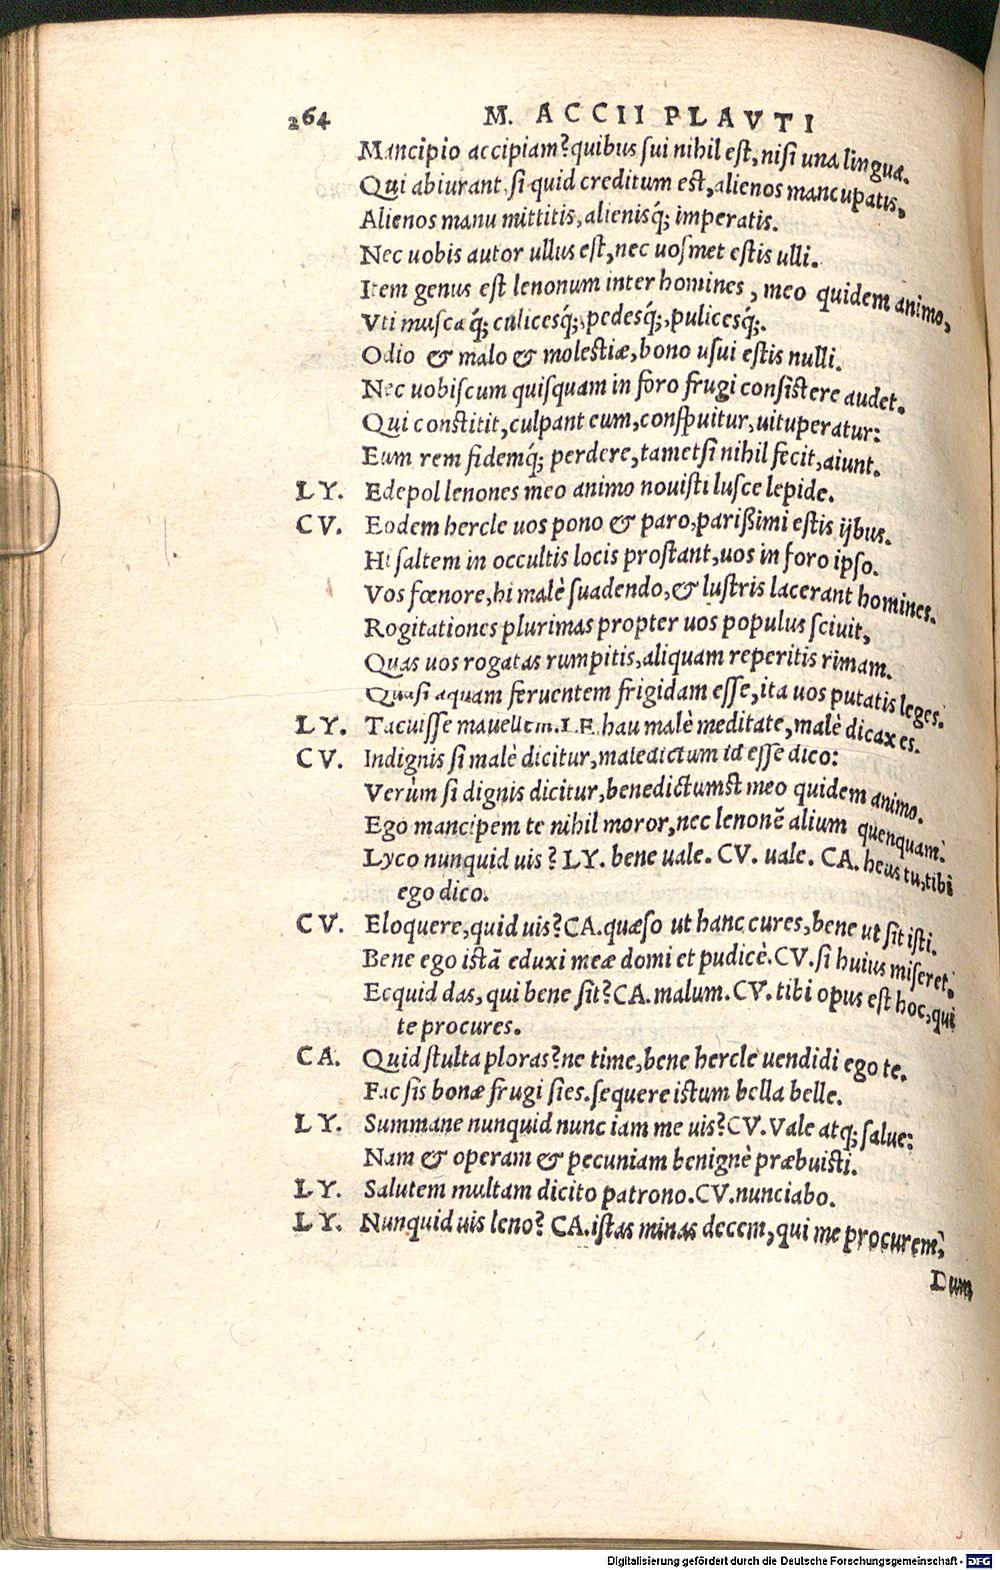 264 M. ACCII PLAVTI
Mancipio accipiam? quibus sui nihil est, nisi una lingua.
Qui abiurant, si quid creditum est, alienos mancupatis,
Alienos manu mittitis, alienisq́; imperatis.
Nec uobis autor ullus est, nec uosmet estis ulli.
Item genus est lenonum inter homines, meo quidem animo,
Vti muscaq́; culicesq́;, pedesq́;, pulicesq́;.
Odio & malo & molestiæ, bono usui estis nulli.
Nec uobiscum quisquam in foro frugi consistere audet.
Qui constitit, culpant eum, conspuitur, uituperatur:
Eum rem fidemq́; perdere, tametsi nihil fecit, aiunt.
LY. Edepol lenones meo animo nouisti lusce lepide.
CV. Eodem hercle uos pono & paro, parißimi estis ijbus.
Hi saltem in occultis locis prostant, uos in foro ipso.
Vos fœnore, hi malè suadendo, & lustris lacerant homines.
Rogitationes plurimas propter uos populus sciuit,
Quas uos rogatas rumpitis, aliquam reperitis rimam.
Quasi aquam feruentem frigidam esse, ita uos putatis leges.
LY. Tacuisse mauellem. LE. hau malè meditate, malè dicax es.
CV. Indignis si malè dicitur, maledictum id esse dico:
Verùm si dignis dicitur, benedictumst meo quidem animo.
Ego mancipem te nihil moror, nec lenonē alium quenquam.
Lyco nunquid uis? LY. bene uale. CV. uale. CA. heus tu, tibi
ego dico.
CV. Eloquere, quid uis? CA. quæso ut hanc cures, bene ut sit isti.
Bene ego istā eduxi meæ domi et pudicè. CV. si huius miseret.
Ecquid das, qui bene sit? CA. malum. CV. tibi opus est hoc, qui
te procures.
CA. Quid stulta ploras? ne time, bene hercle uendidi ego te.
Fac sis bonæ frugi sies. sequere istum bella belle.
LY. Summane nunquid nunc iam me uis? CV. Vale atq́; salue:
Nam & operam & pecuniam benignè præbuisti.
LY. Salutem multam dicito patrono. CV. nunciabo.
LY. Nunquid uis leno? CA. istas minas decem, qui me procurem,
Dum
Digitalisierung gefördert durch die Deutsche Forschungsgemeinschaft - DFG